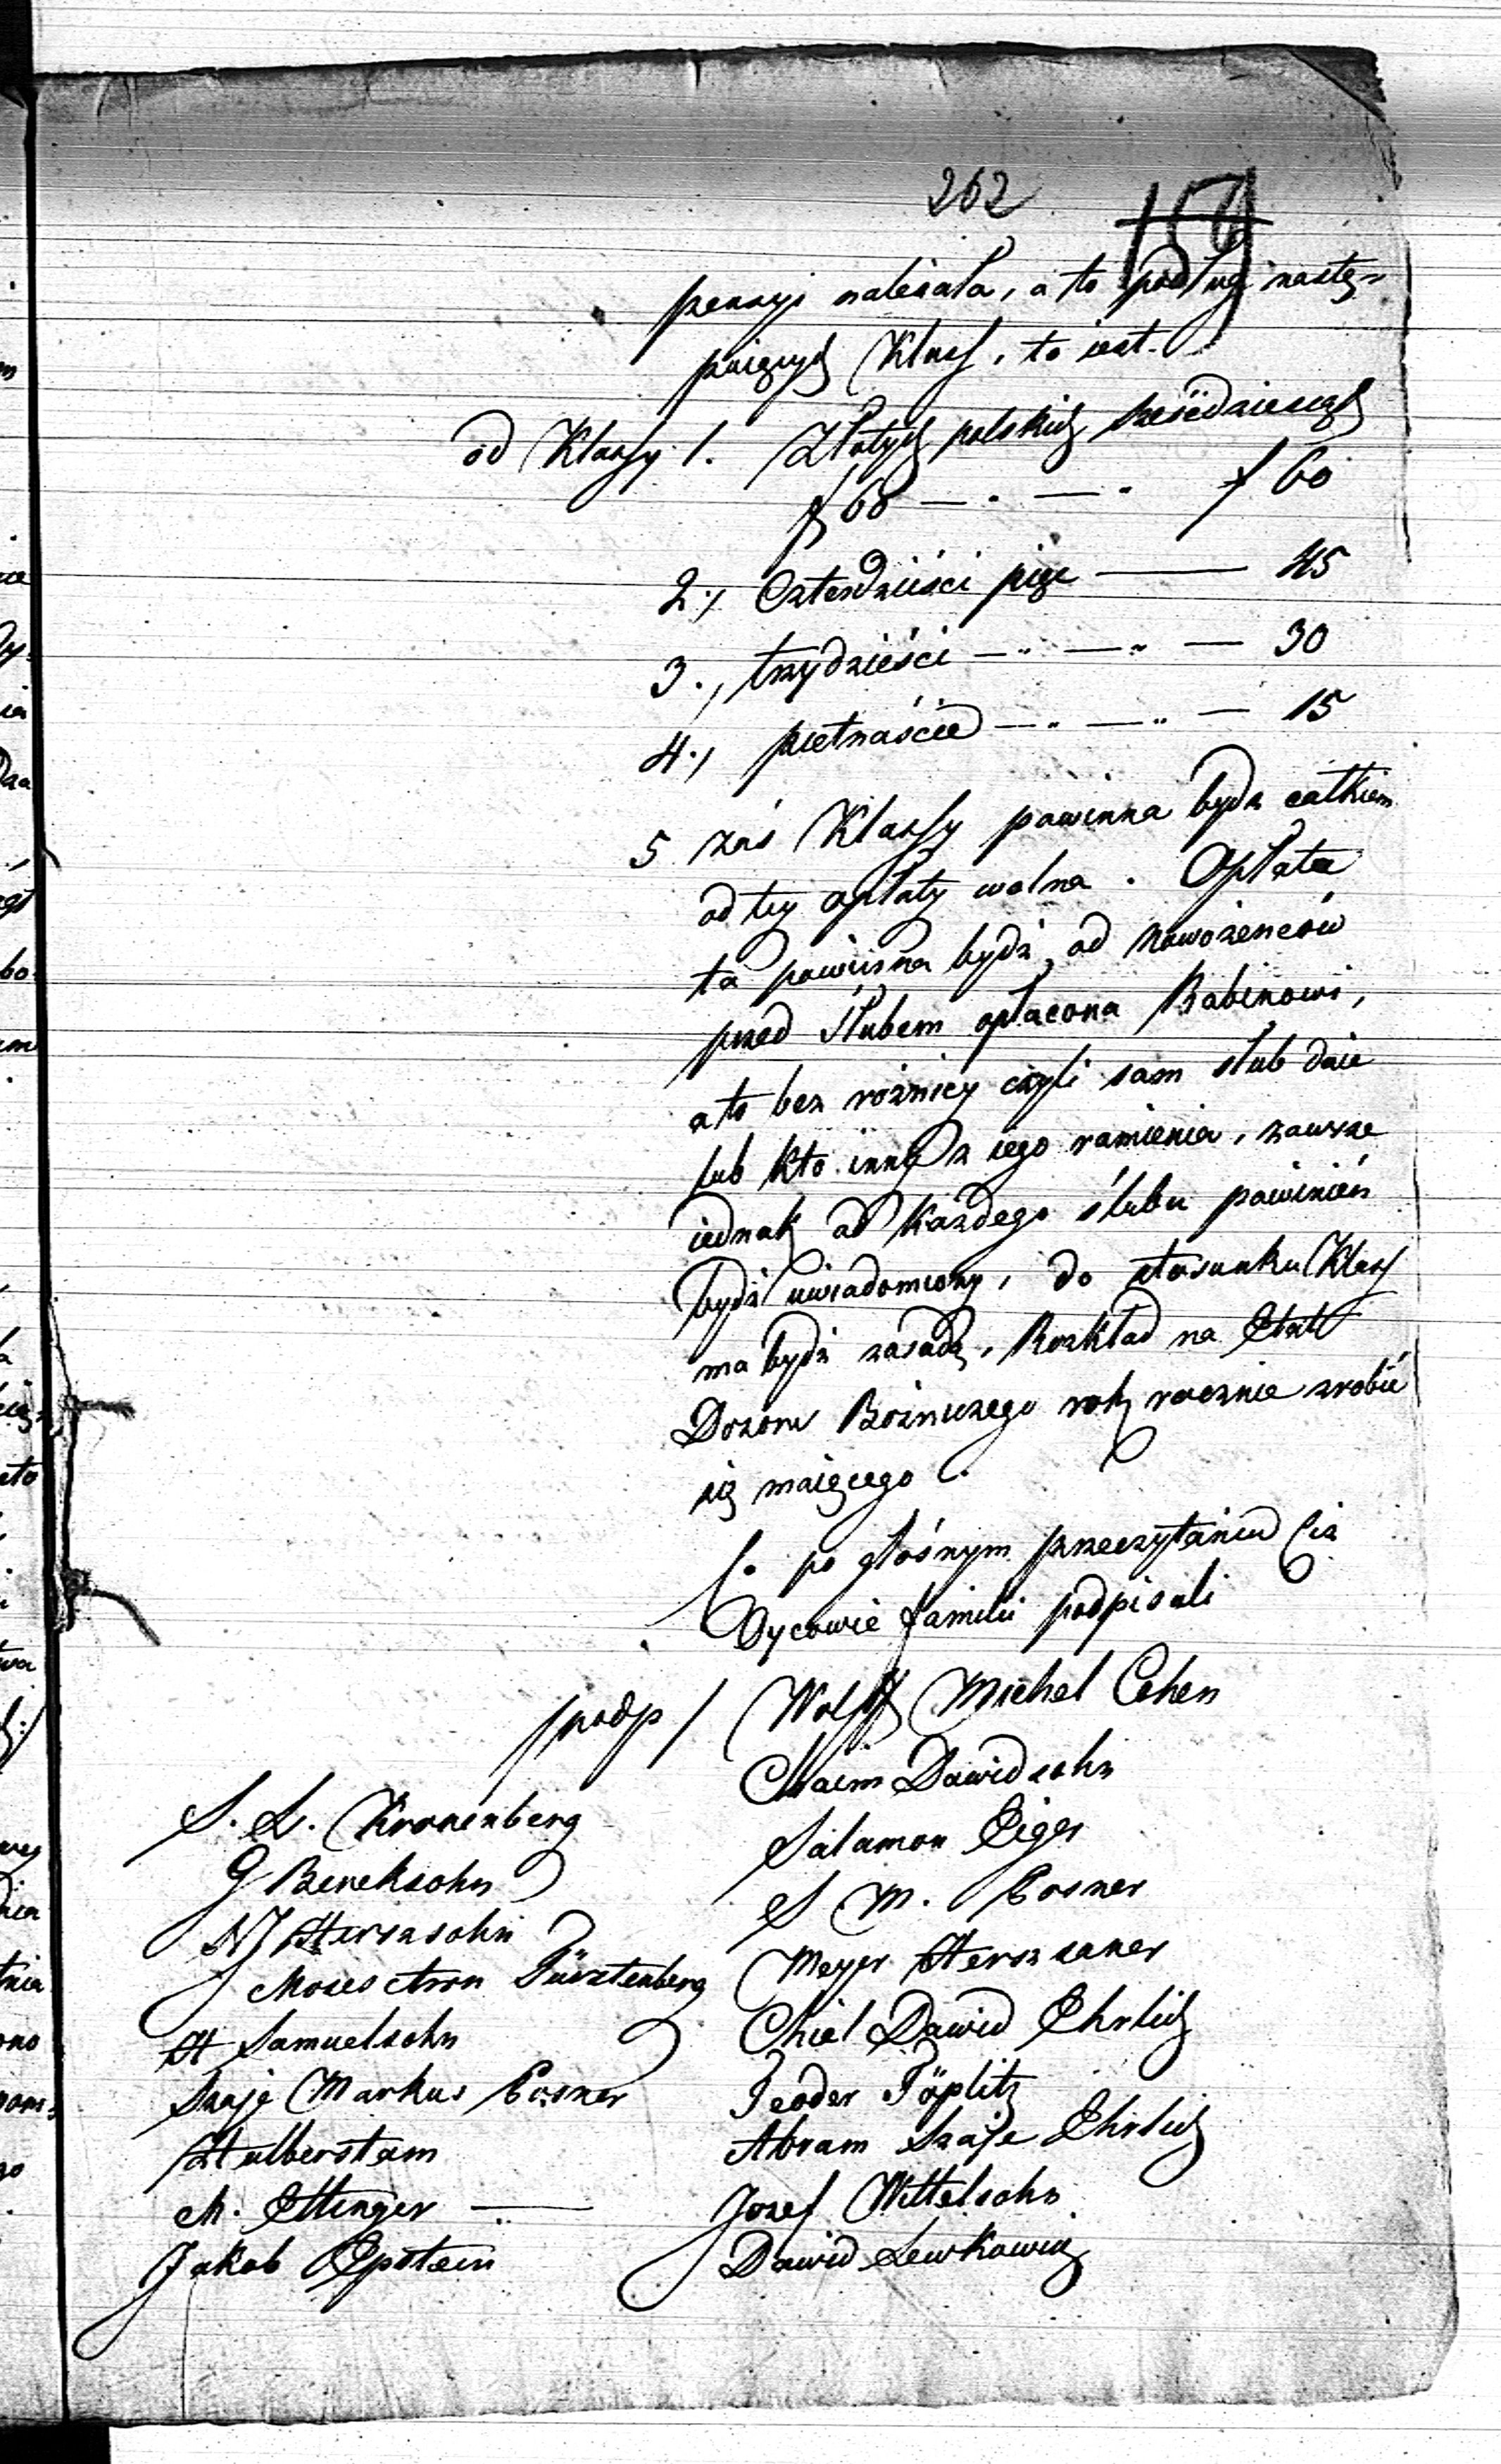 262
159
pensyi należała, a to podług nastę-
puiących Klass, to iest.
od Klassy 1. Złotych polskich sześćdziesiąt
f 60 — . — . f 60
2., Czterdzieści pięć —— 45
3., trzydzieści — „ — „ — 30
4., piętnaście — „ — „ — 15
5 zaś Klassy powinna bydź całkiem
od tey opłaty wolna. Opłata
ta powinna bydź od nowożeńców
przed ślubem opłacona Rabinowi,
a to bez różnicy czyli sam ślub daie
lub kto inny z iego ramienia, zawsze
iednak od każdego ślubu powinien
bydź uwiadomiony, do stosunku Klass
ma bydź zasadą, Rozkład na Etat
Dozoru Bożniczego rok rocznie zrobić
się maiącego.
po głośnym przeczytaniu ciż
Oycowie familii podpisali
/podp/ Wolff Michel Cohen
Chaim Dawidsohn
S. L. Kronenberg
Salamon Eiger
G Bereksohn
S M. Posner
N J Herszsohn
Meyer Herszaner
Moses Aron Fürstenberg
Chiel Dawid Ehrlich
H Samuelsohn
Teodor Töplitz
Szaje Markus Posner
Abram Szaje Ehrlich
Halberstam
Jozef Wittelsohn
M. Ettinger —
Dawid Lewkowicz
Jakob Epstein